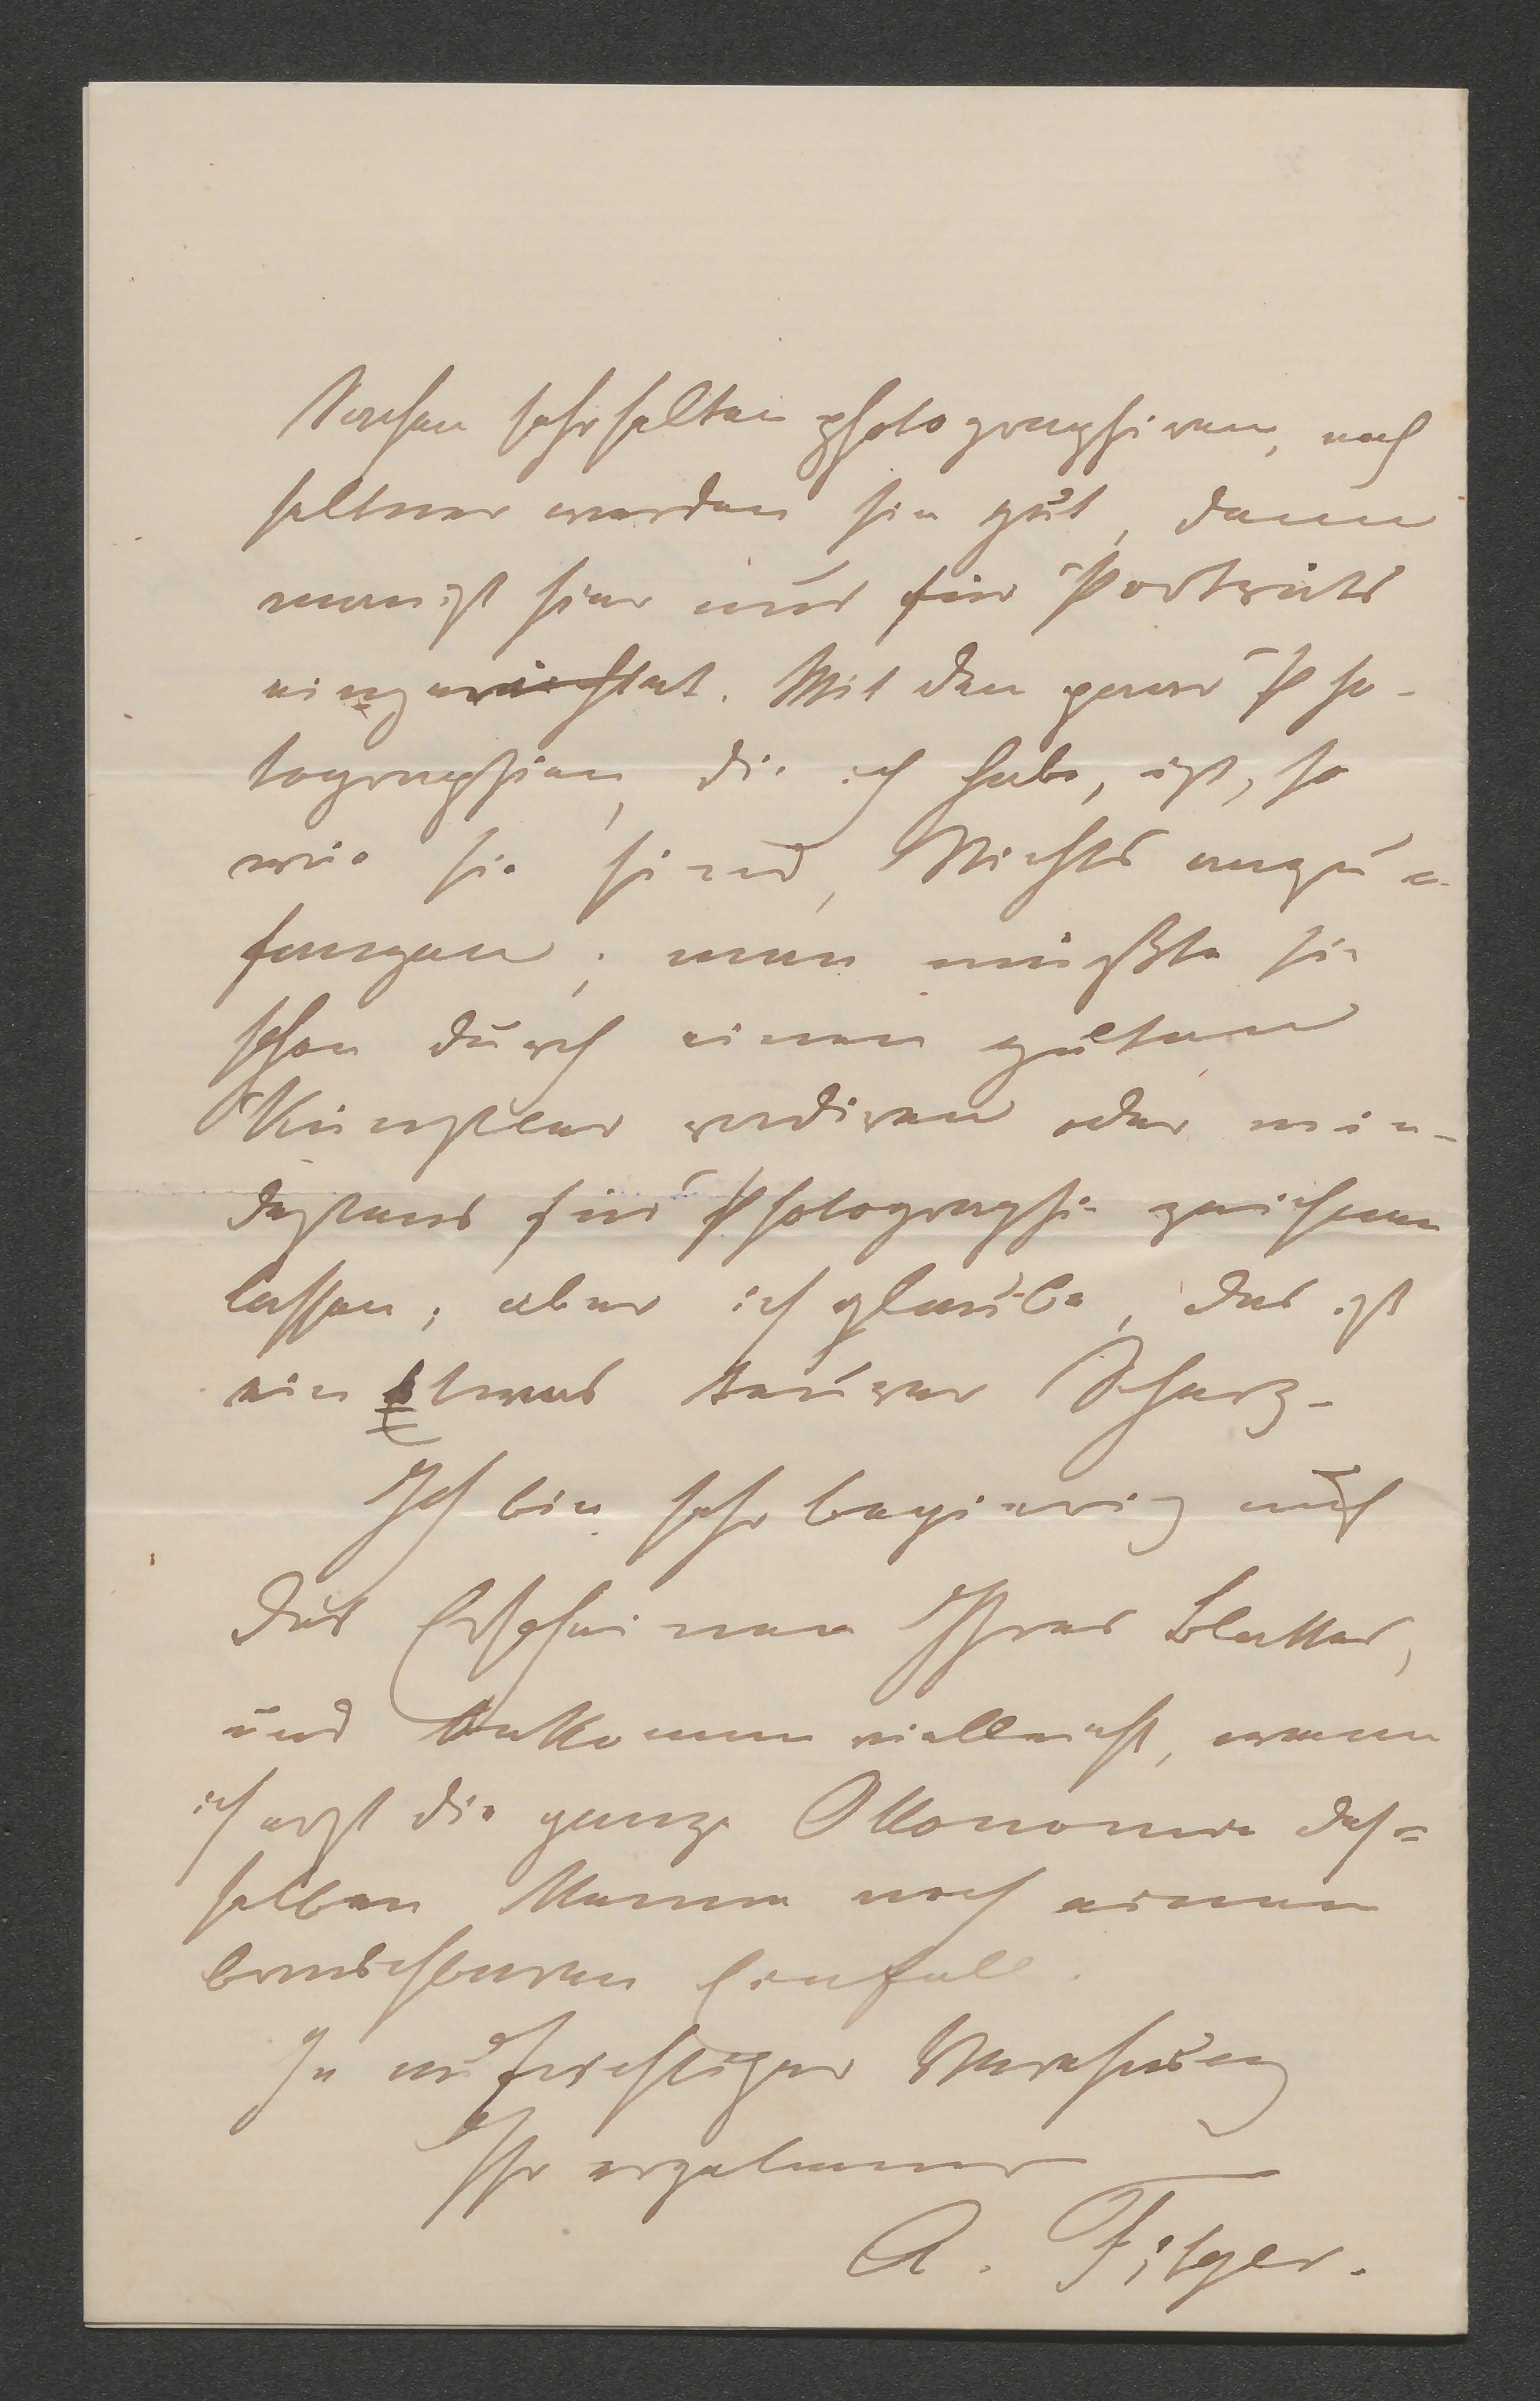 Sachen sehr selten photographiren, noch
seltener werden sie gut, denn
man ist hier nur für Porträts
eingerichtet. Mit den paar Pho-
tographien, die ich habe, ist, so
wie sie sind, Nichts anzu-
fangen; man müßte sie
schon durch einen guten
Künstler radiren oder min-
destens für Photographie zeichnen
lassen; aber ich glaube, das ist
ein etwas teurer Scherz.
Ich bin sehr begierig auf
das Erscheinen Ihres Blattes,
und bekomme vielleicht, wenn
ich erst die ganze Ökonomie des-
selben kenne noch einen
brauchbaren Einfall.
In aufrichtiger Verehrung
Ihr ergebener
A. Fitger.